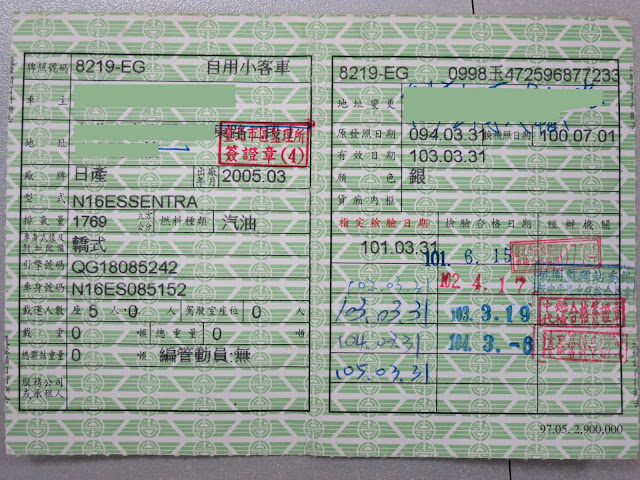 牌照號碼 8219-EG 自用小客車
車主
地址
簽證章(4)
廠牌 日產 出廠年月 2005.03
型式 N16ESSENTRA
排氣量 1769 立方公分 燃料種類 汽油
轎式
引擎號碼 QG18085242
車身號碼 N16ES085152
載運人數 座 5 人 0 人 駕駛室座位 0 人
載重 0 噸 總重量 0 噸
0 噸 編管動員:無
服務公司或承租人
8219-EG 0998玉472596877233
地址變更
原發照日期 094.03.31 換照日期 100.07.01
有效日期 103.03.31
顏色 銀
貨廂內框
指定檢驗日期 檢驗合格日期 經辦機關
101.03.31 101. 6. 15
103.03.31 102. 4. 17
103.03.31 103. 3. 19
104.03.31 104. 3. -6
105.03.31
97.05. 2,900,000